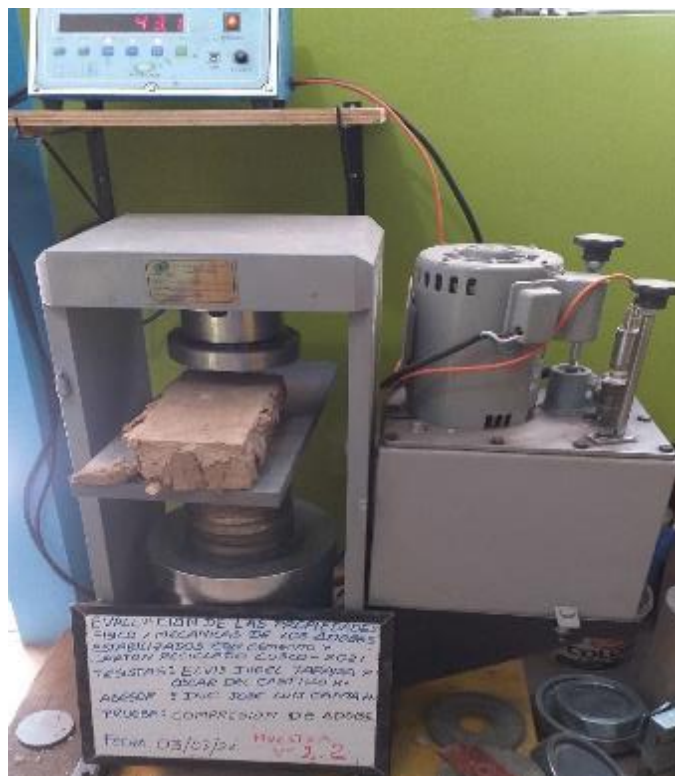 431
EVALUACION DE LAS PROPIEDADES
FISICO / MECANICAS DE LOS ADOBES
ESTABILIZADOS CON CEMENTO Y
CARTON RECICLADO CUSCO - 2021
TESISTAS: ELVIS
OSCAR DEL CASTILLO H.
ASESOR : ING JOSE LUIS
PRUEBA: COMPRESION DE ADOBE
FECHA: 03/02/22 MUESTRA
Nº 1.2